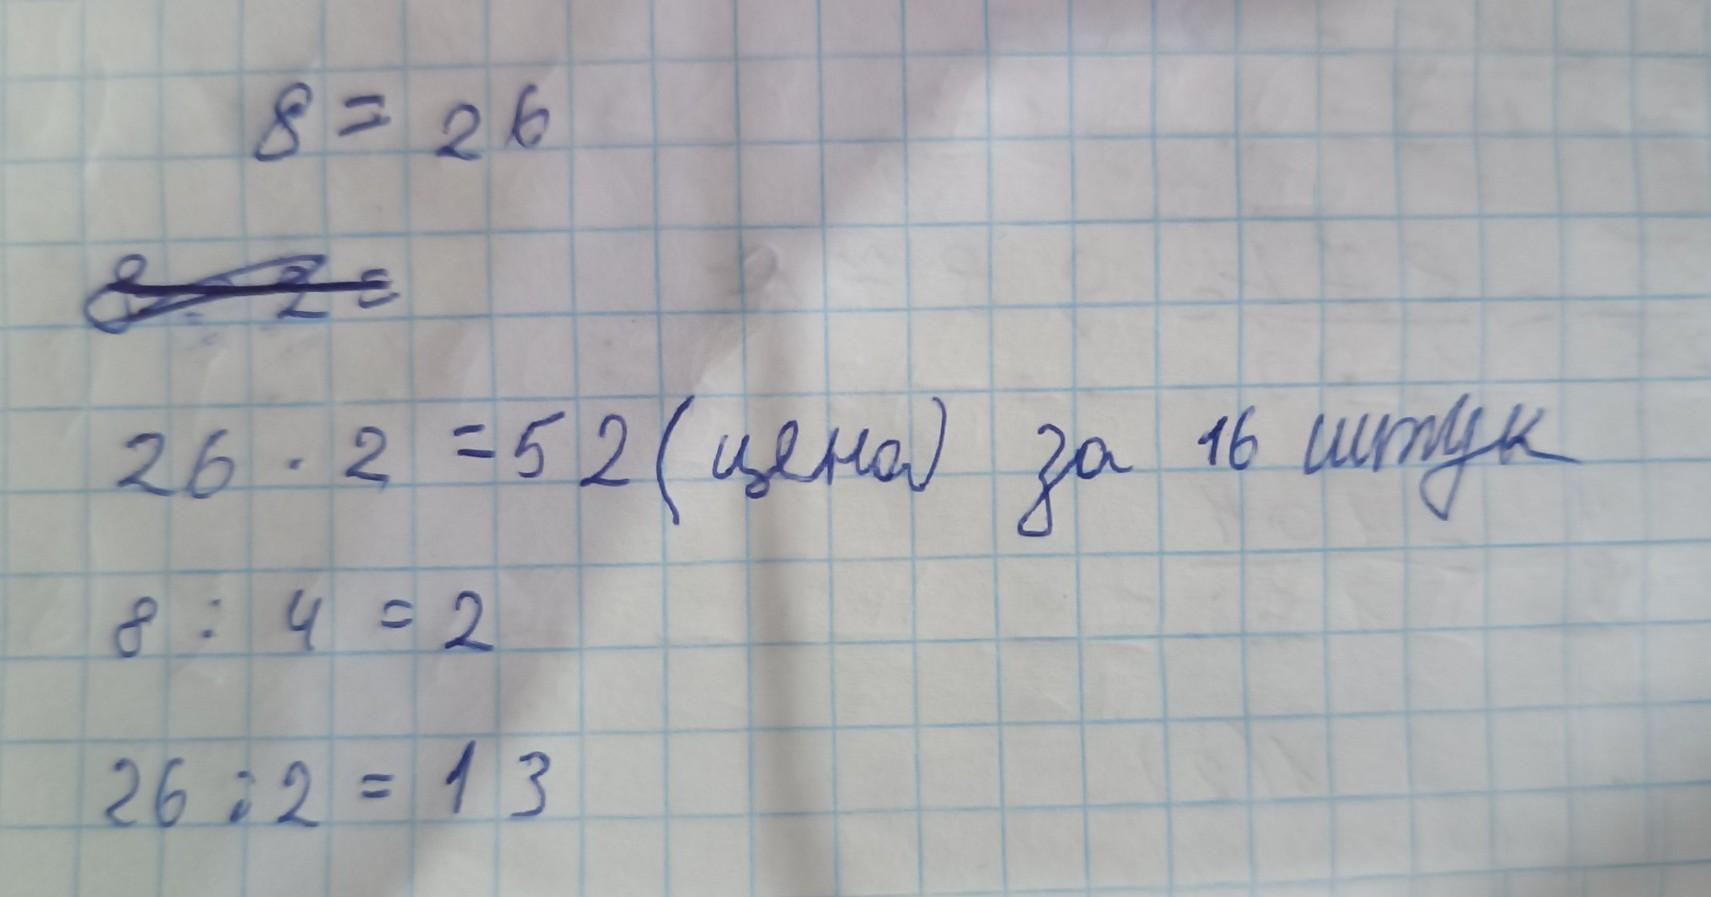 8 = 26
8 : 2 =
26 · 2 = 52 (цена) за 16 штук
8 : 4 = 2
26 : 2 = 13